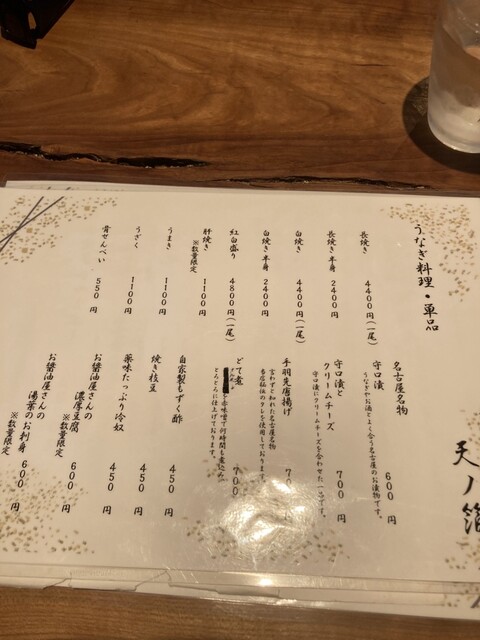 うなぎ料理・単品
長焼き 4400円(一尾)
長焼き半身 2400円
白焼き 4400円(一尾)
白焼き半身 2400円
紅白盛り 4800円(一尾)
肝焼き 1100円
※数量限定
うまき 1100円
うざく 1100円
骨せんべい 550円
天ノ
名古屋名物
守口漬 600円
うなぎやお酒とよく合う名古屋のお漬物です。
守口漬と
クリームチーズ 700円
守口漬にクリームチーズを合わせた一品です。
手羽先唐揚げ
言わずと知れた名古屋名物
当店秘伝のタレを使用しております。
どて煮 700
を赤味噌で何時間も煮込み
とろとろに仕上げております。
自家製もずく酢 450円
焼き枝豆 450円
薬味たっぷり冷奴 450円
お醤油屋さんの
濃厚豆腐 600円
※数量限定
お醤油屋さんの
湯葉のお刺身 600円
※数量限定